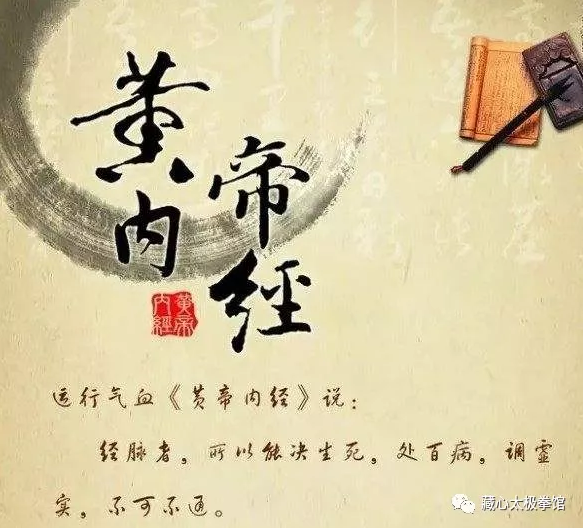 黄帝内經
黄帝内經
运行气血《黄帝内经》说：
经脉者，所以能决生死，处百病，调虚
实，不可不通。
藏心太极拳馆